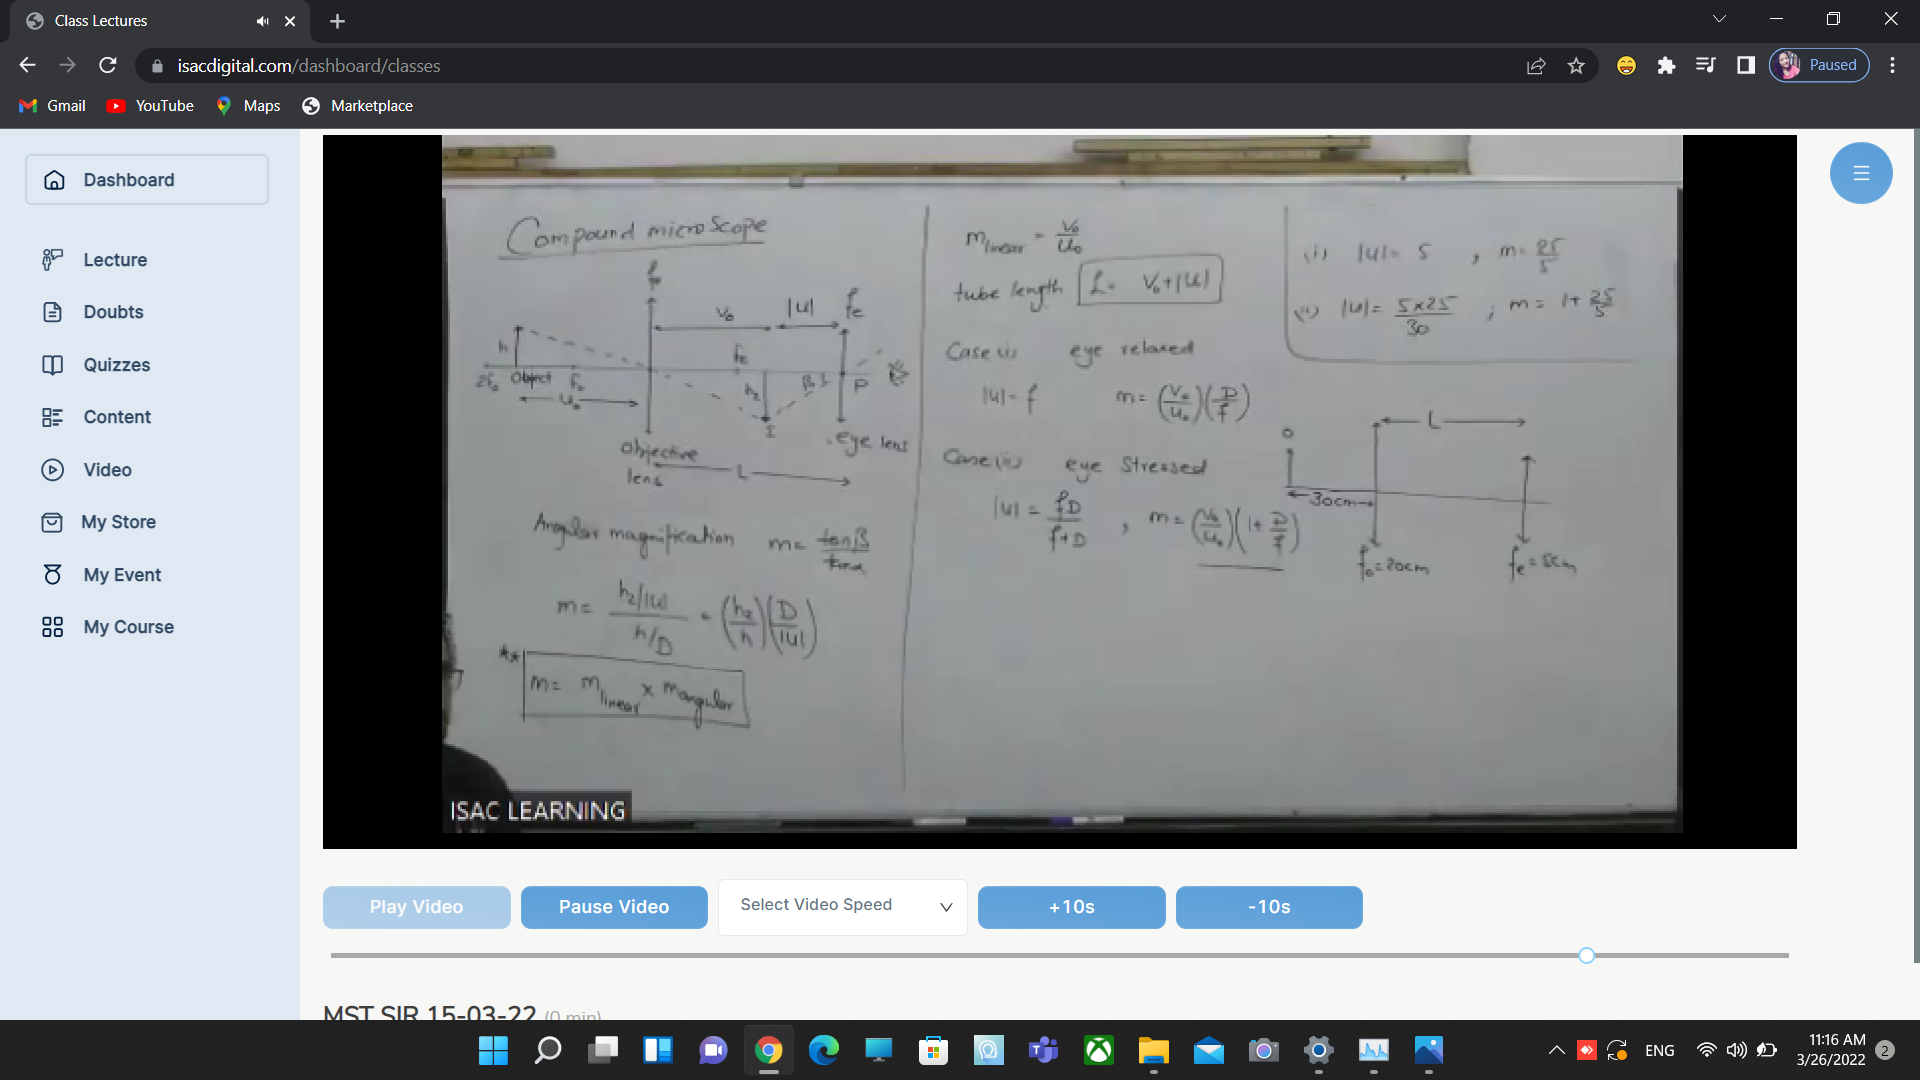 Class Lectures
isacdigital.com/dashboard/classes
Paused
Gmail YouTube Maps Marketplace
Dashboard
Lecture
Doubts
Quizzes
Content
Video
My Store
My Event
My Course
Compound microscope
fo
Vo |u| fe
h
2fo Object fo
fe
h2
β
P
uo
I
objective lens
eye lens
L
Angular magnification m = tanβ/tanα
m = (h2/|u|)/(h/D) = (h2/h)(D/|u|)
** m = m linear x m angular
m linear = Vo/Uo
tube length L = Vo+|U|
Case (i) eye relaxed
|u| = f m = (Vo/Uo)(D/f)
Case (ii) eye stressed
|u| = fD/f+D , m = (Vo/Uo)(1+D/f)
(i) |u| = 5 , m = 25/5
(ii) |u| = 5×25/30 ; m = 1+25/5
L
O
30cm
fo=20cm fe=5cm
ISAC LEARNING
Play Video
Pause Video
Select Video Speed
+10s
-10s
MST SIR 15-03-22 (0 min)
ENG
11:16 AM
3/26/2022
2